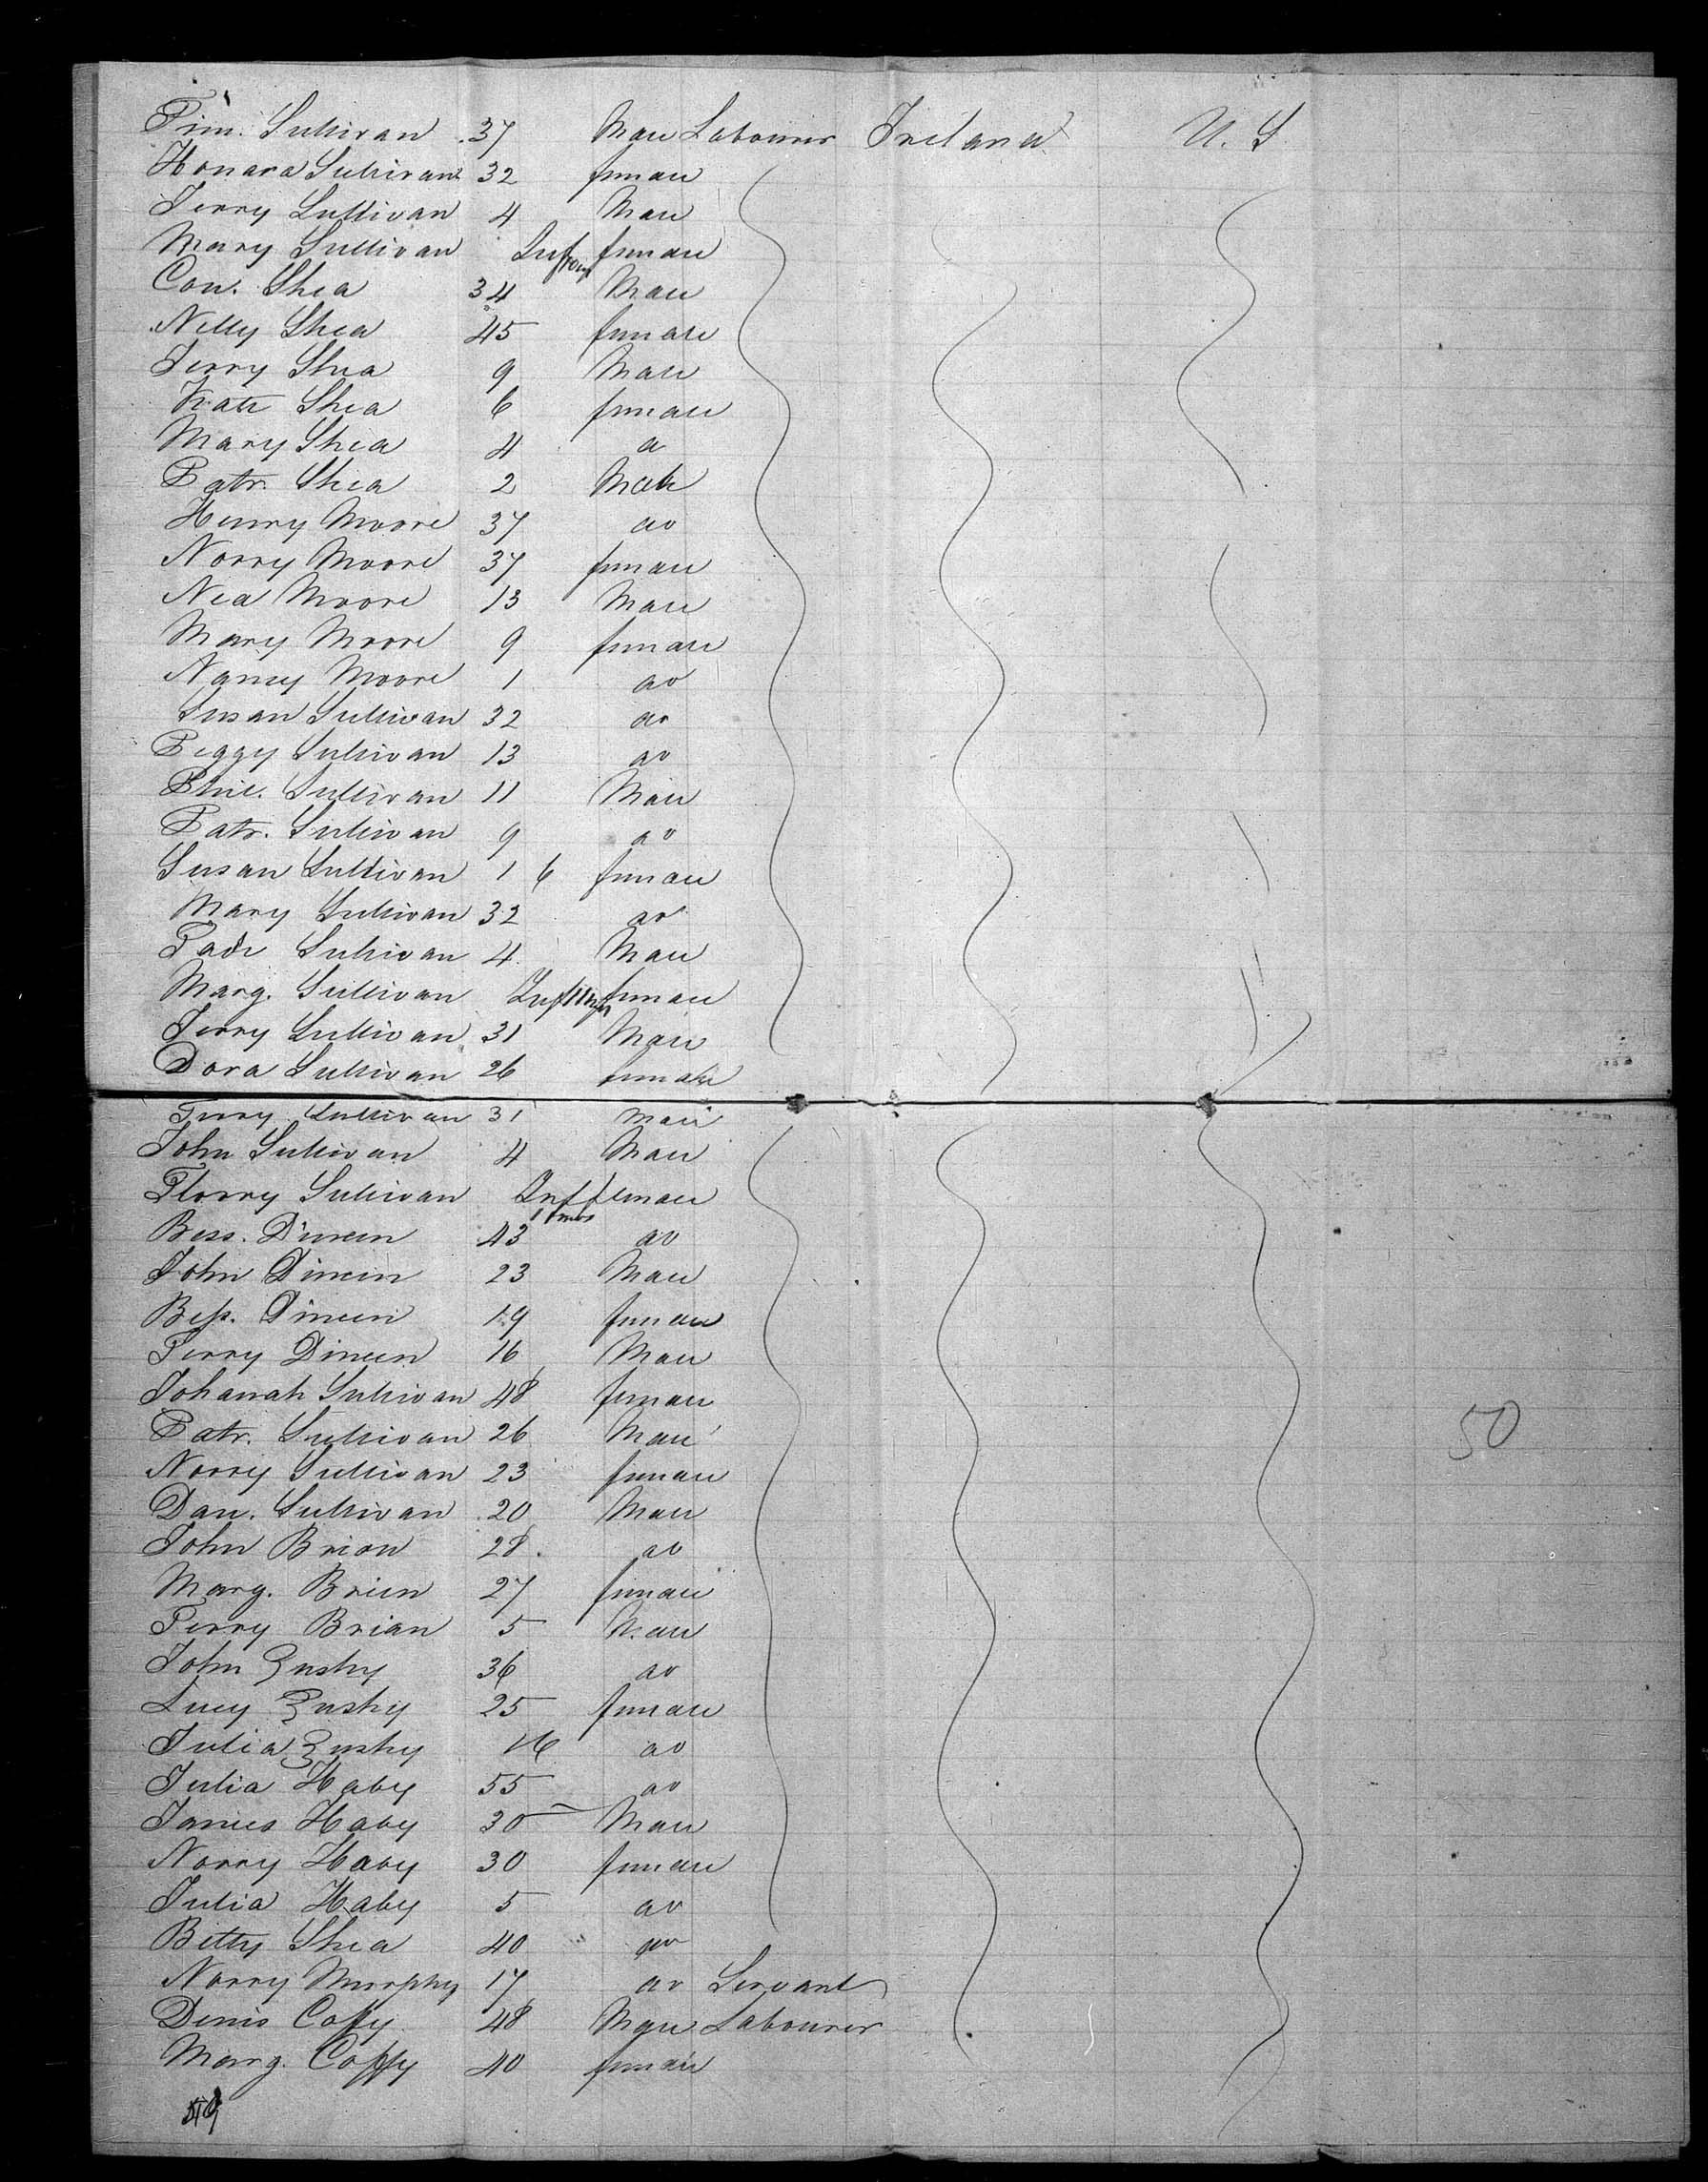 Tim. Sullivan 37 Male Labourer Ireland U. S.
Honara Sullivan 32 female
Jerry Sullivan 4 Male
Mary Sullivan female
Con. Shea 34 Male
Nelly Shea 45 female
Jerry Shea 9 Male
Kate Shea 6 female
Mary Shea 4
Patr. Shea 2 Male
Henry Moore 37 do
Norry Moore 37 female
Moore 13 Male
Mary Moore 9 female
Nancy Moore 1 do
Susan Sullivan 32 do
Peggy Sullivan 13 do
Phil. Sullivan 11 Male
Patr. Sullivan 9 do
Susan Sullivan 1 6 female
Mary Sullivan 32 do
Sullivan 4 Male
Marg. Sullivan female
Jerry Sullivan 31 Male
Dora Sullivan 26 female
Jerry Sullivan 31 Male
John Sullivan 4 Male
Florry Sullivan Inf 11 mos female
Bess. Dineen 43 do
John Dineen 23 Male
Bess. Dineen 19 female
Terry Dineen 16 Male
Johanah Sullivan 48 female
Patr. Sullivan 26 Male
Norry Sullivan 23 female
Dan. Sullivan 20 Male
John Brien 28 do
Marg. Brien 27 female
Terry Brian 5 Male
John 36 do
Lucy 25 female
Julia do
Julia Haby 55 do
James Haby 30 Male
Norry Haby 30 female
Julia Haby 5 do
Betty Shea 40 do
Norry Murphy 17 do Servant
Denis Coffy 48 Male Labourer
Marg. Coffy 40 female
50